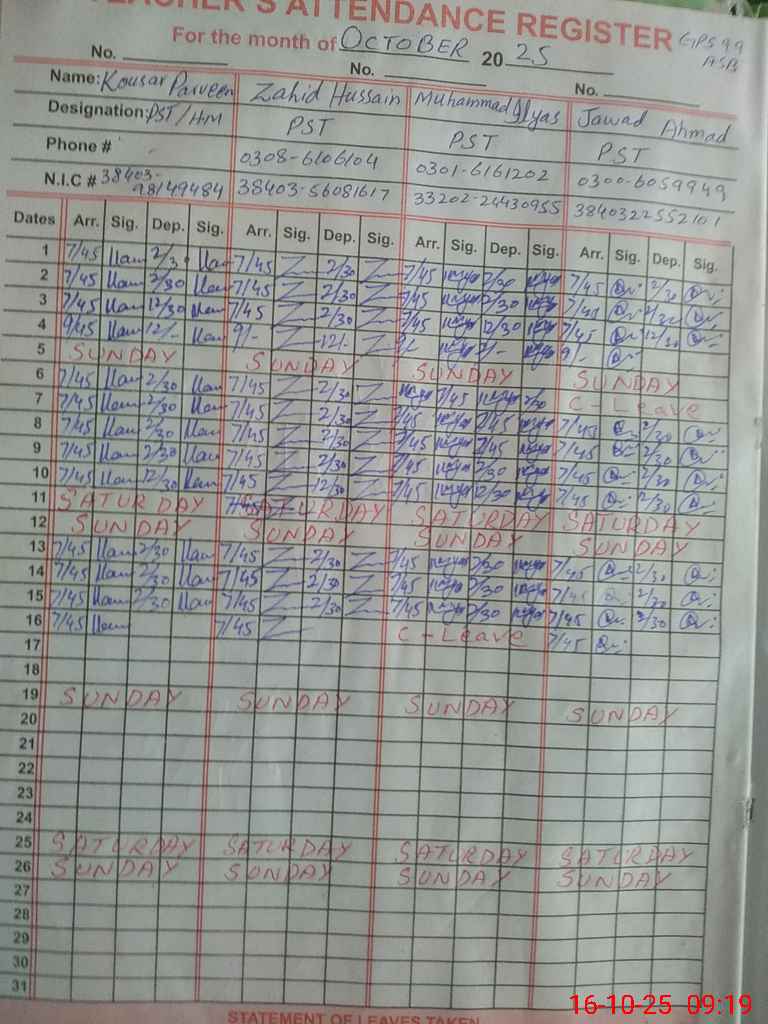 TEACHER'S ATTENDANCE REGISTER GPS 99
For the month of OCTOBER 2025 ASB
No. No. No.
Name: Kousar Parveen Zahid Hussain Muhammad Ilyas Jawad Ahmad
Designation: PST/HM PST PST PST
Phone # 0308-6106104 0301-6161202 0300-6059949
N.I.C # 38403-98149484 38403-56081617 33202-24430955 3840322552101
Dates Arr. Sig. Dep. Sig. Arr. Sig. Dep. Sig. Arr. Sig. Dep. Sig. Arr. Sig. Dep. Sig.
1 7/45 2/30 7/45 2/30 7/45 2/30 7/45 2/30
2 7/45 2/30 7/45 2/30 7/45 2/30 7/45 2/30
3 7/45 12/30 7/45 2/30 7/45 12/30 7/45 12/30
4 9/45 12/- 9/- 12/- 9/-
5 SUNDAY SUNDAY SUNDAY SUNDAY
6 7/45 2/30 7/45 2/30 7/45 2/30 C-Leave
7 7/45 2/30 7/45 2/30 7/45 7/45 7/45 2/30
8 7/45 2/30 7/45 2/30 7/45 7/45 7/45 2/30
9 7/45 2/30 7/45 2/30 7/45 2/30 7/45 2/30
10 7/45 12/30 7/45 12/30 7/45 12/30 7/45 2/30
11 SATURDAY SATURDAY SATURDAY SATURDAY
12 SUNDAY SUNDAY SUNDAY SUNDAY
13 7/45 2/30 7/45 2/30 7/45 2/30 7/45 2/30
14 7/45 2/30 7/45 2/30 7/45 2/30 7/45 2/30
15 7/45 2/30 7/45 2/30 7/45 2/30 7/45 2/30
16 7/45 7/45 C-Leave 7/45
17
18
19 SUNDAY SUNDAY SUNDAY SUNDAY
20
21
22
23
24
25 SATURDAY SATURDAY SATURDAY SATURDAY
26 SUNDAY SUNDAY SUNDAY SUNDAY
27
28
29
30
31
16-10-25 09:19
STATEMENT OF LEAVES TAKEN